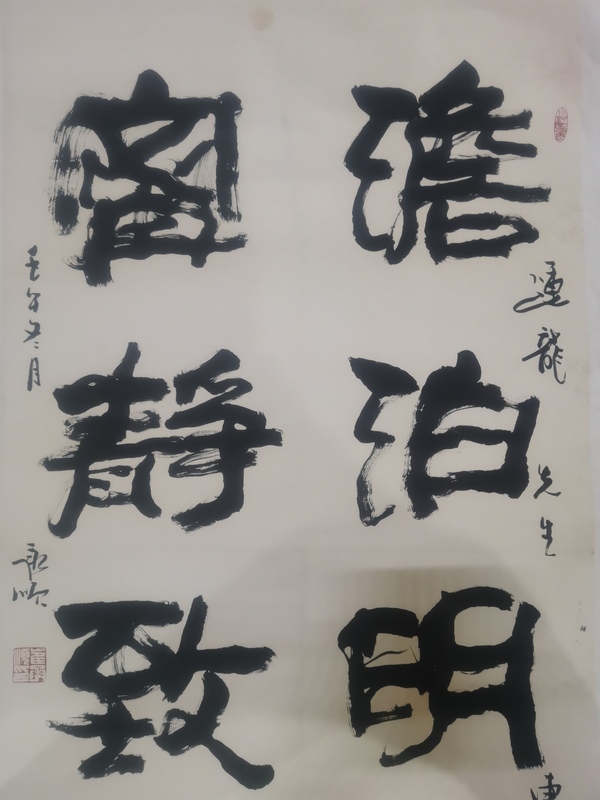 龍
先生
澹泊明
甯靜致
壬午冬月